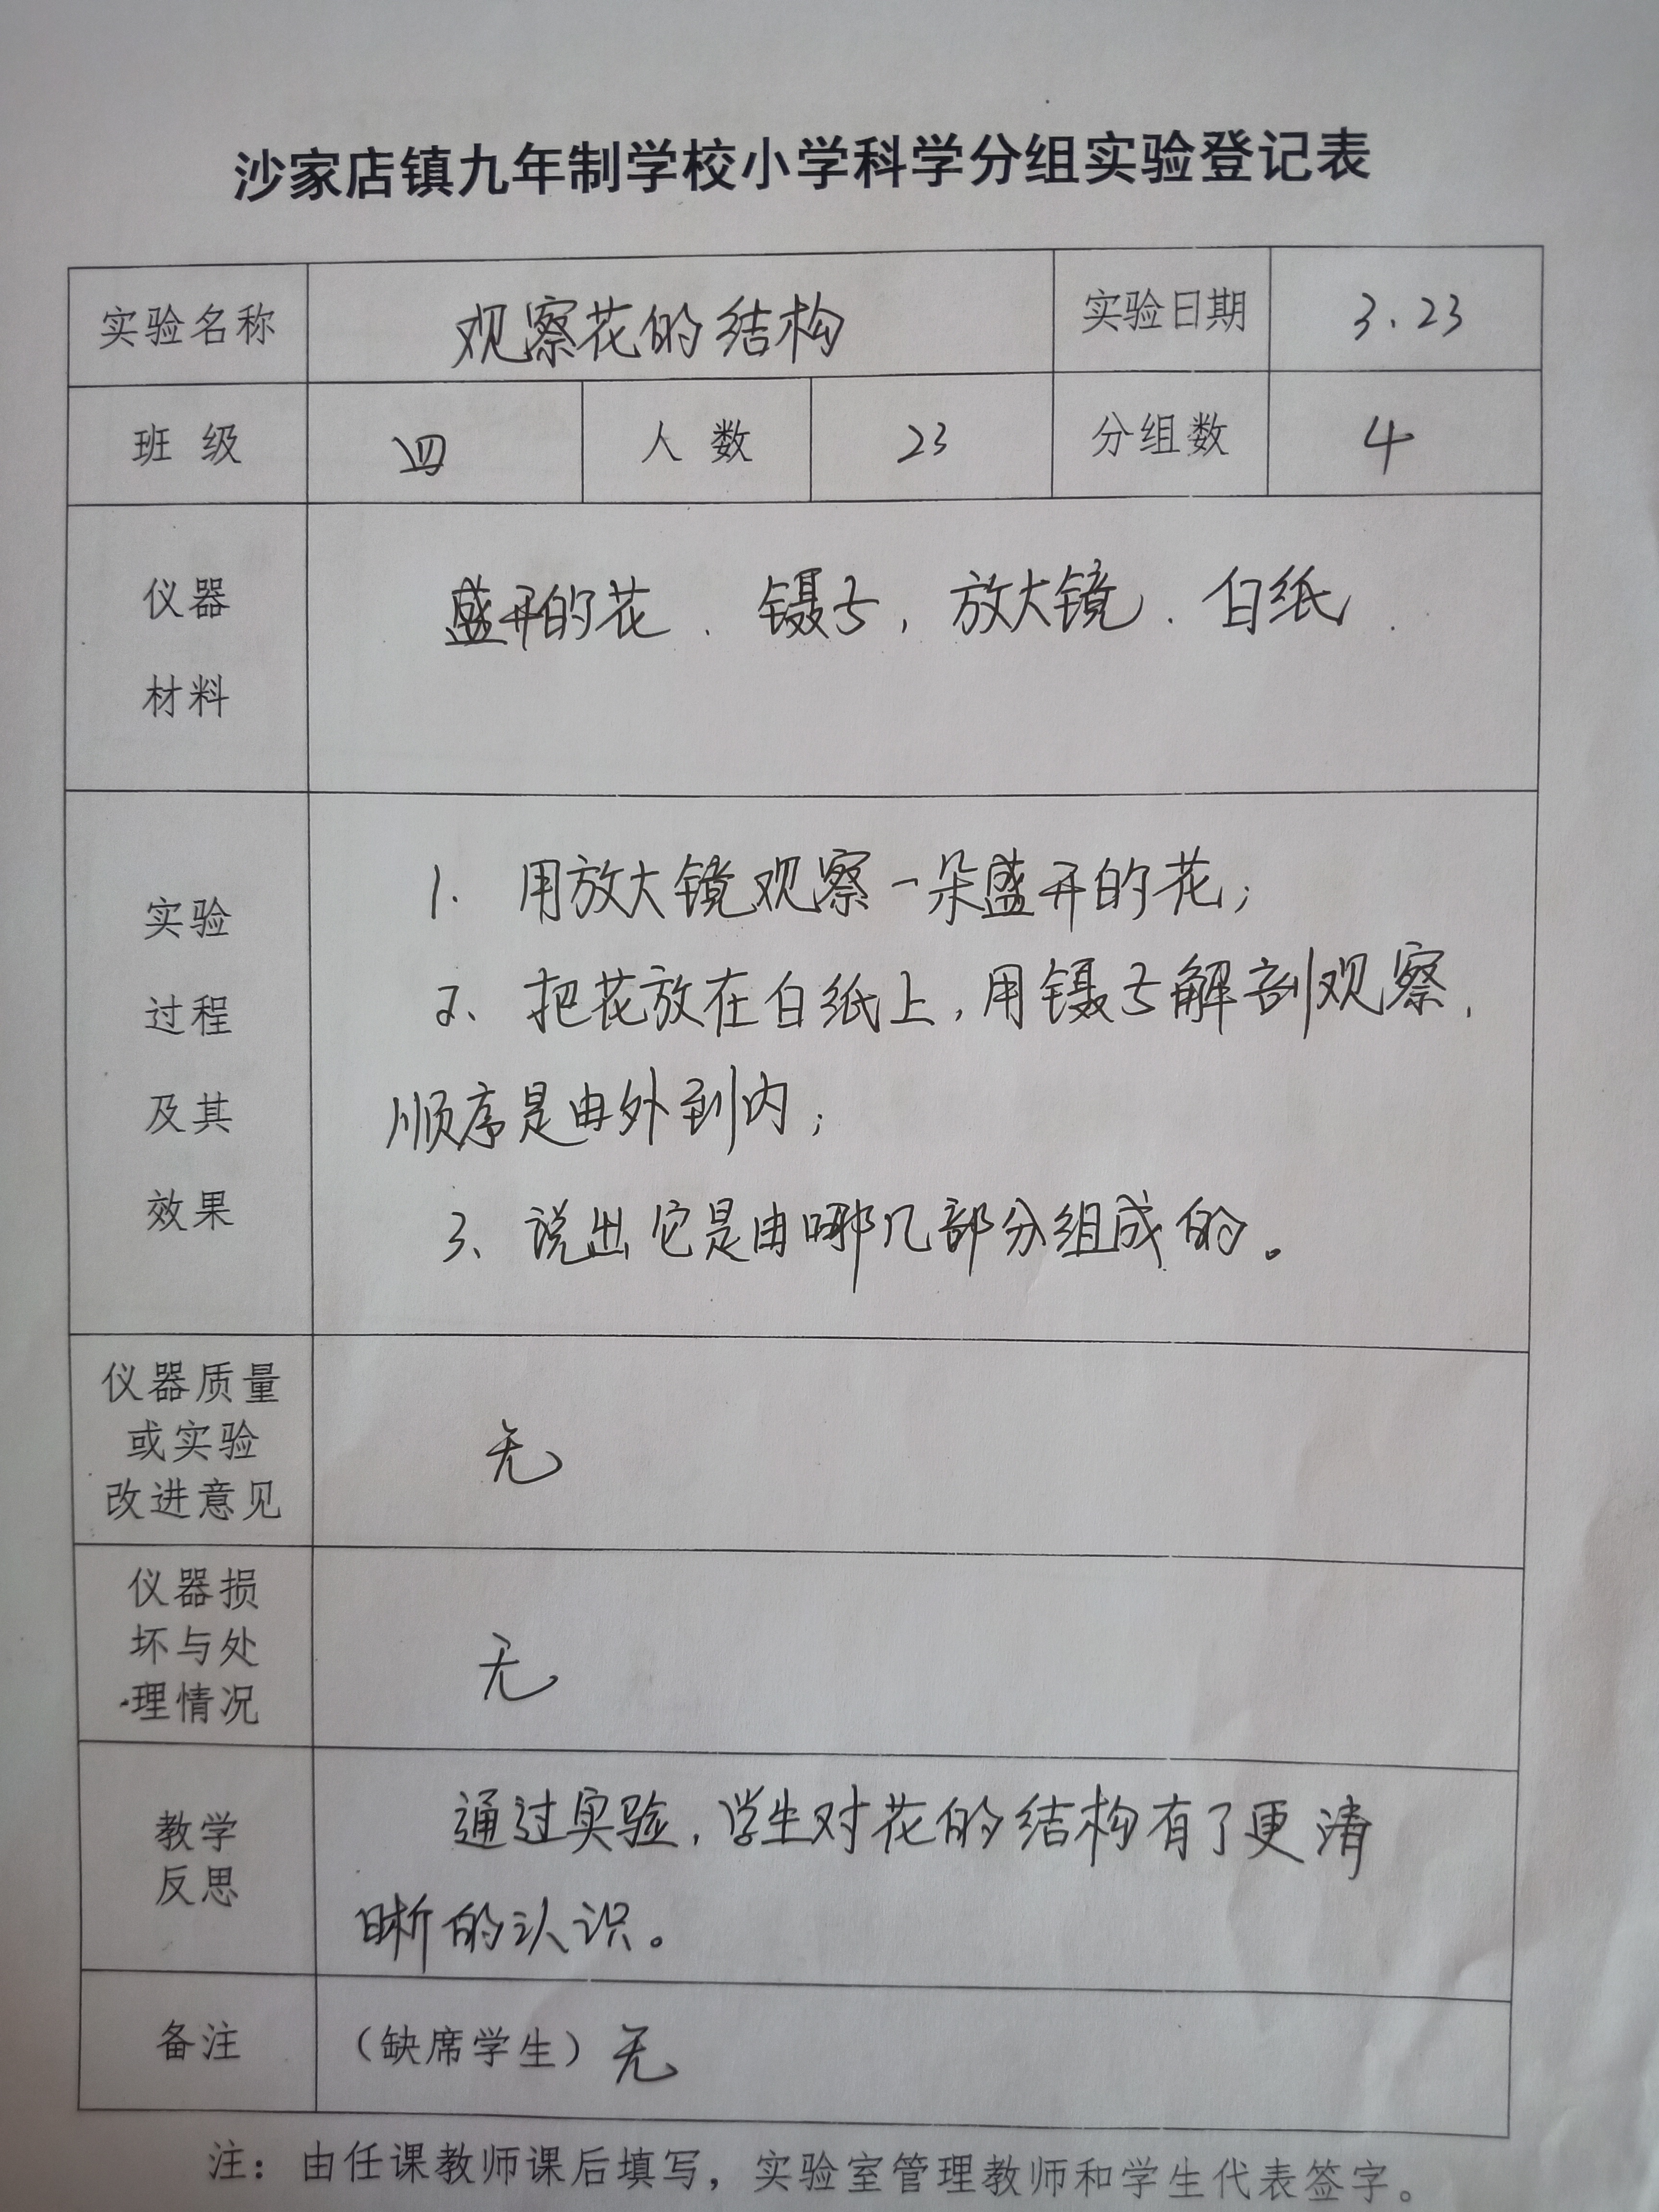 沙家店镇九年制学校小学科学分组实验登记表
实验名称 观察花的结构 实验日期 3.23
班 级 四 人 数 23 分组数 4
仪器
材料
盛开的花、镊子，放大镜、白纸.
实验
过程
及其
效果
1. 用放大镜观察一朵盛开的花；
2、把花放在白纸上，用镊子解剖观察，
顺序是由外到内；
3、说出它是由哪几部分组成的。
仪器质量
或实验
改进意见
无
仪器损
坏与处
理情况
无
教学
反思
通过实验，学生对花的结构有了更清
晰的认识。
备注 （缺席学生）无
注：由任课教师课后填写，实验室管理教师和学生代表签字。